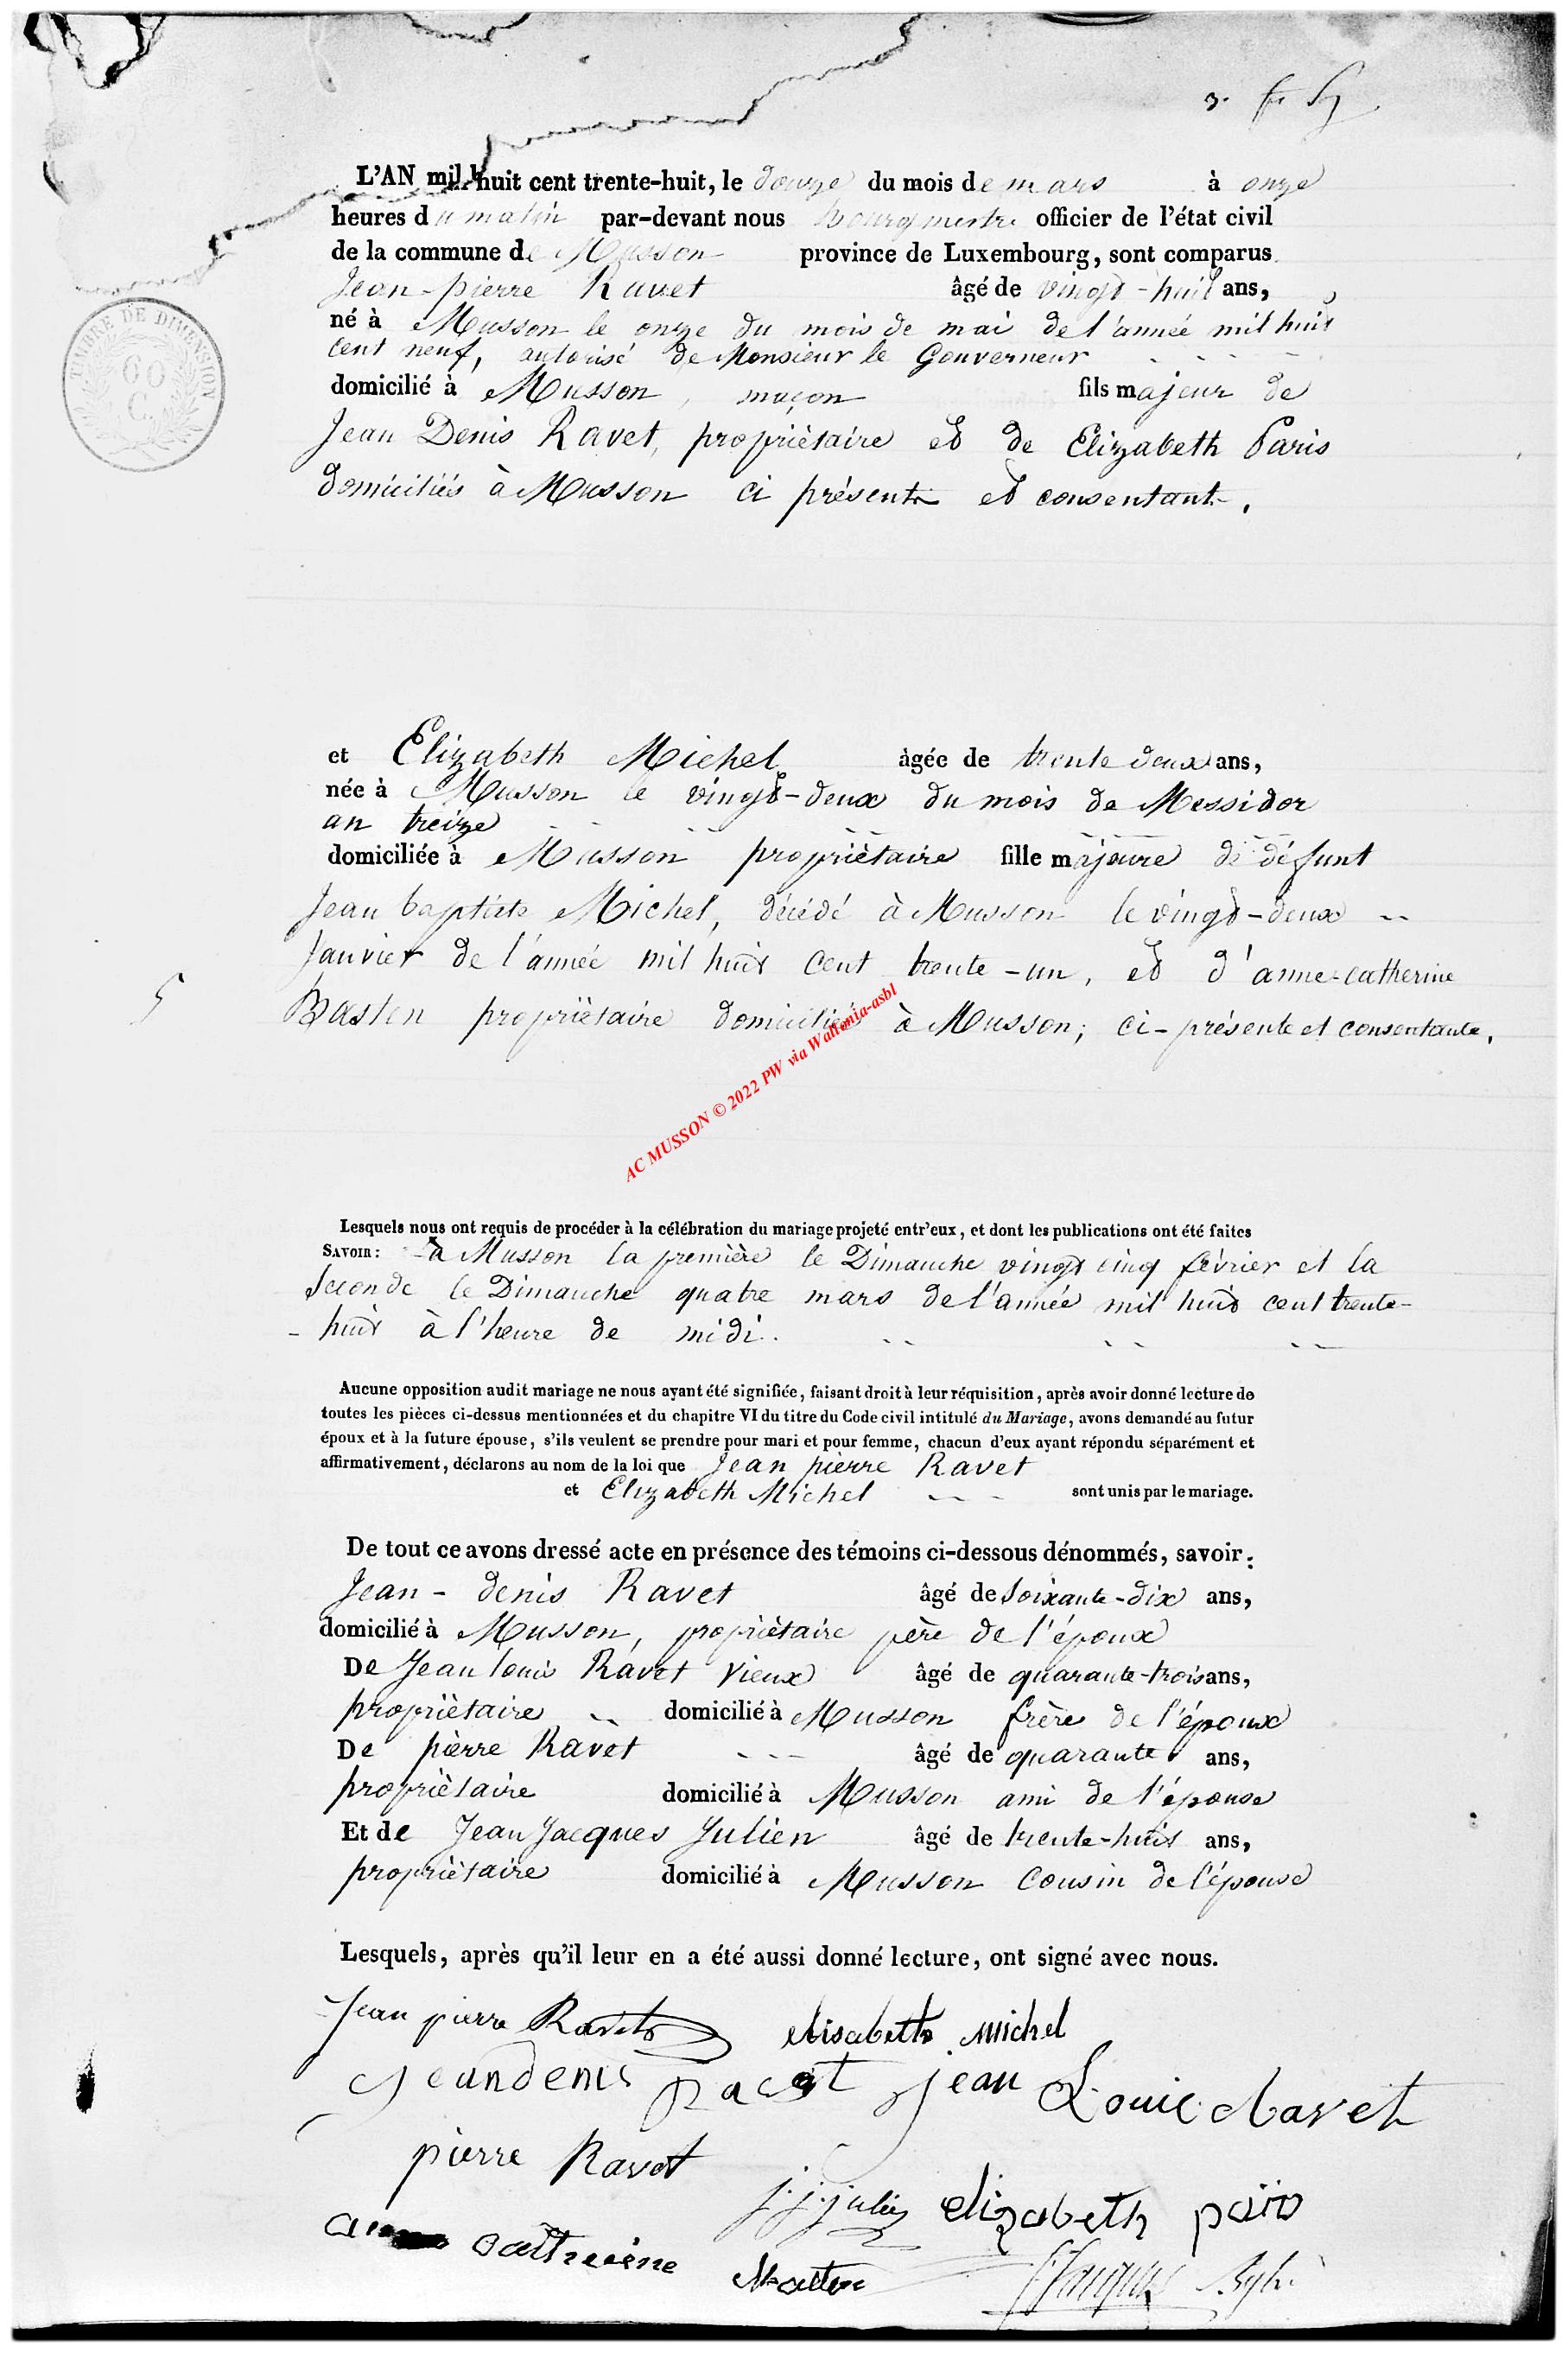 L'AN mil huit cent trente-huit, le douze du mois de mars à onze
heures du matin par-devant nous bourgmestre officier de l'état civil
de la commune de Musson province de Luxembourg, sont comparus
Jean-pierre Ravet âgé de vingt-huit ans,
né à Musson le onze du mois de mai de l'année mil huit
cent neuf, autorisé de Monsieur le Gouverneur
domicilié à Musson, maçon fils majeur de
Jean Denis Ravet, propriètaire et de Elizabeth Paris
domiciliés à Musson ci présents et consentants.
TIMBRE DE DIMENSION
60
C.
et Elizabeth Michel âgée de trente deux ans,
née à Musson le vingt-deux du mois de Messidor
an treize
domiciliée à Musson propriètaire fille majeure de défunt
Jean baptiste Michel, décédé à Musson le vingt-deux
Janvier de l'année mil huit cent trente-un, et d'anne-catherine
5
propriètaire domiciliée à Musson; ci-présente et consentante.
AC MUSSON © 2022 PW via Wallonia-asbl
Lesquels nous ont requis de procéder à la célébration du mariage projeté entr'eux, et dont les publications ont été faites
SAVOIR: à Musson la première le Dimanche vingt cinq février et la
seconde le Dimanche quatre mars de l'année mil huit cent trente-
-huit à l'heure de midi.
Aucune opposition audit mariage ne nous ayant été signifiée, faisant droit à leur réquisition, après avoir donné lecture de
toutes les pièces ci-dessus mentionnées et du chapitre VI du titre du Code civil intitulé du Mariage, avons demandé au futur
époux et à la future épouse, s'ils veulent se prendre pour mari et pour femme, chacun d'eux ayant répondu séparément et
affirmativement, déclarons au nom de la loi que Jean pierre Ravet
et Elizabeth Michel sont unis par le mariage.
De tout ce avons dressé acte en présence des témoins ci-dessous dénommés, savoir:
Jean-denis Ravet âgé de soixante-dix ans,
domicilié à Musson, propriètaire père de l'époux
De Jean louis Ravet vieux âgé de quarante-trois ans,
propriètaire domicilié à Musson frère de l'époux
De pierre Ravet âgé de quarante ans,
propriètaire domicilié à Musson ami de l'épouse
Et de Jean Jacques Julien âgé de trente-huit ans,
propriètaire domicilié à Musson cousin de l'épouse
Lesquels, après qu'il leur en a été aussi donné lecture, ont signé avec nous.
Jean pierre Ravet elisabeth michel
Jeandenis Ravet jean Louis Ravet
pierre Ravet
j.j. julien elizabeth paris
catherine